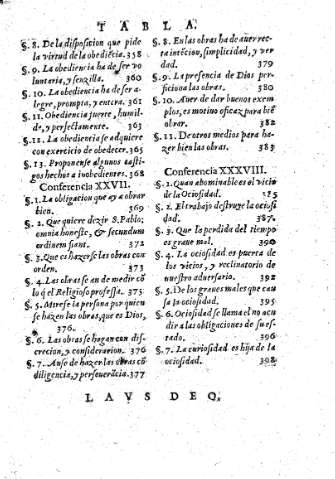 TABLA.
§. 8. De la disposicion que pide
la virtud de la obediẽcia. 358
§. 9. La obediencia ha de ser vo
luntaria, y senzilla. 360
§. 10. La obediencia ha de ser a-
legre, prompta, y entera. 361
§. 11. Obediencia fuerte, humil-
de, y perfectamente. 363
§. 12. La obediencia se adquiere
con exercicio de obedecer. 365
§. 13. Proponense algunos casti-
gos hechos a inobedientes. 368
Conferencia XXVII.
§. 1. La obligacion que ay a obrar
bien. 369
§. 2. Que quiere dezir S. Pablo;
omnia honestè, & secundum
ordinem fiant. 372
§. 3. Que es hazer se las obras con
orden. 373
§. 4. Las obras se an de medir cõ
lo q̃ el Religioso professa. 375
§. 5. Mirese la persona por quien
se hazen las obras, que es Dios,
376.
§. 6. Las obras se hagan con dis-
crecion, y consideracion. 376
§. 7. Anse de hazer las obras cõ
diligencia, y perseverãcia. 377
§. 8. En las obras ha de auer rec-
ta intẽcion, simplicidad, y ver
dad. 379
§. 9. La presencia de Dios per-
ficiona las obras. 380
§. 10. Auer de dar buenos exem-
plos, es motiuo eficaz para biẽ
obrar. 382
§. 11. De otros medios para ha-
zer bien las obras. 383
Conferencia XXXVIII.
§. 1. Quan abominable es el vicio
de la Ociosidad. 385
§. 2. El trabajo destruye la ociosi
dad. 387.
§. 3. Que la perdida del tiempo
es graue mal. 390
§. 4. La ociosidad es puerta de
los vicios, y reclinatorio de
nuestro aduersario. 392
§. 5. De los graues males que cau
sa la ociosidad. 395
§. 6. Ociosidad se llama el no acu
dir a las obligaciones de su es-
tado. 396
§. 7. La curiosidad es hija de la
ociosidad. 398
LAVS DEO.